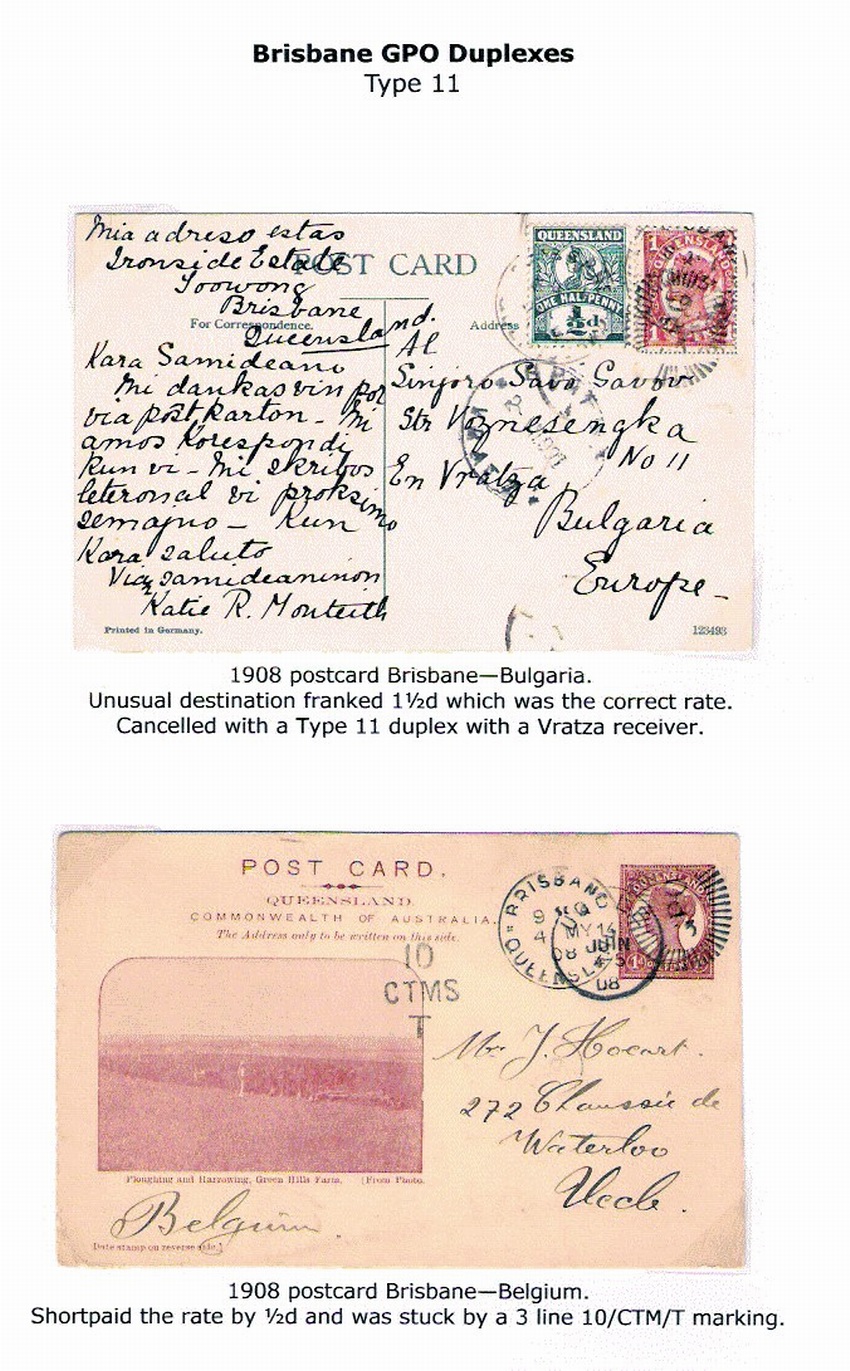 Brisbane GPO Duplexes
Type 11
Mia adreso estas
Ironside Estate
Toowong
Brisbane
Queensland.
POST CARD
For Correspondence.
Address
QUEENSLAND
ONE HALFPENNY
½d
Kara Samideano
Mi dankas vin por
via post karton - Mi
amos Korespondi
Kun vi - Mi skribos
leteron al vi proksimo
semajno - Kun
Kara saluto
Via samideaninon
Katie R. Monteith
Al
Sinjoro Savo Savov
Str Voznesengka
No 11
En Vratza
Bulgaria
Europe -
Printed in Germany.
123493
1908 postcard Brisbane—Bulgaria.
Unusual destination franked 1½d which was the correct rate.
Cancelled with a Type 11 duplex with a Vratza receiver.
POST CARD.
QUEENSLAND
COMMONWEALTH OF AUSTRALIA.
The Address only to be written on this side.
10
CTMS
T
BRISBANE
QUEENSLAND
MY 14
08
JUIN
08
Mr J. Hocart.
272 Chaussée de
Waterloo
Uccle.
Ploughing and Harrowing, Green Hills Farm. [From Photo.
Belgium.
Date stamp on reverse side.]
1908 postcard Brisbane—Belgium.
Shortpaid the rate by ½d and was stuck by a 3 line 10/CTM/T marking.